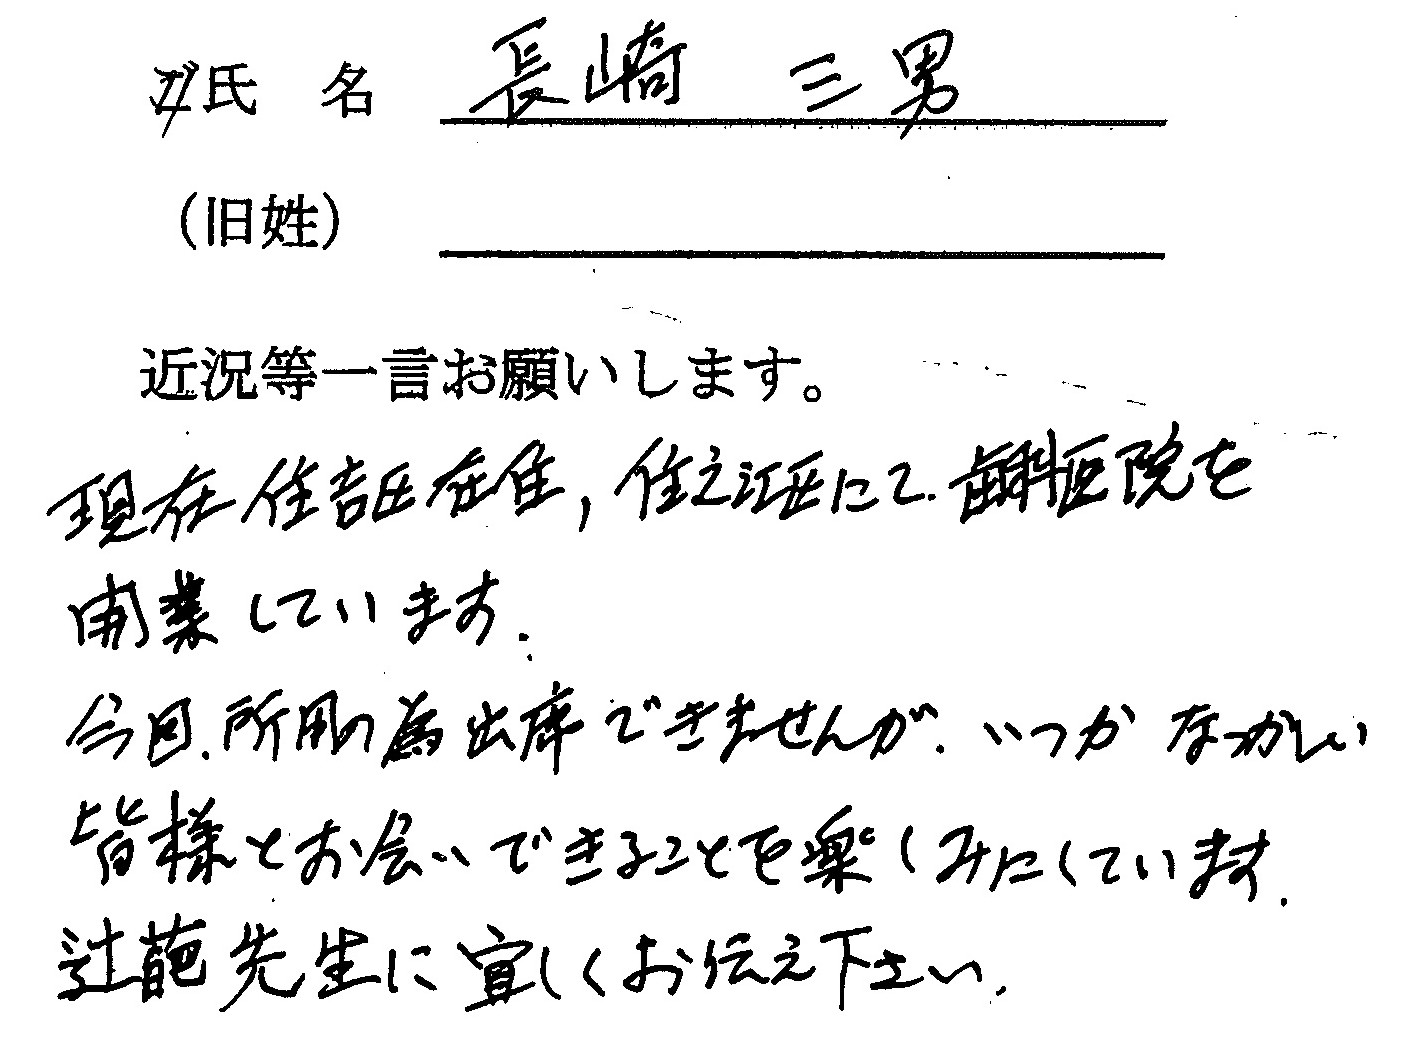 氏 名 長崎 三男
(旧姓)
近況等一言お願いします。
現在住吉区在住,住之江区にて.歯科医院を
開業しています.
今回.所用の為出席できませんが.いつかなつかしい
皆様とお会いできることを楽しみにしています.
先生に宜しくお伝え下さい.